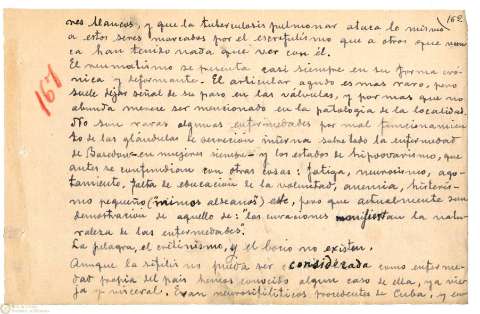 162
167
nes blancos, y que la tuberculosis pulmonar ataca lo mismo
a estos seres marcados por el escrofulismo que a otros que nun
ca han tenido nada que ver con él.
El reumatismo se presenta casi siempre en su forma cró-
nica y deformante. El articular agudo es mas raro, pero
suele dejar señal de su paso en las válvulas, y por mas que no
abunda merece ser mencionado en la patología de la localidad.
No son raras algunas enfermedades por mal funcionamien
to de las glándulas de secreción interna sobre todo la enfermedad
de Basedow en mujeres siempre y los estados de hipoovarismo, que
antes se confundian con otras cosas: fatiga, neurosismo, ago-
tamiento, falta de educacion de la voluntad, anemia, histeris-
mo pequeño (mimos alsean) etc, pero que actualmente son
demostracion de aquello de: "las curaciones manifiestan la natu-
raleza de las enfermedades".
La pelagra, el cretinismo, y el bocio no existen.
Aunque la sífilis no pueda ser considerada como enferme-
dad propia del pais hemos conocido algun caso de ella, ya vie-
ja y visceral. Eran neurosifiliticos procedentes de Cuba, y en